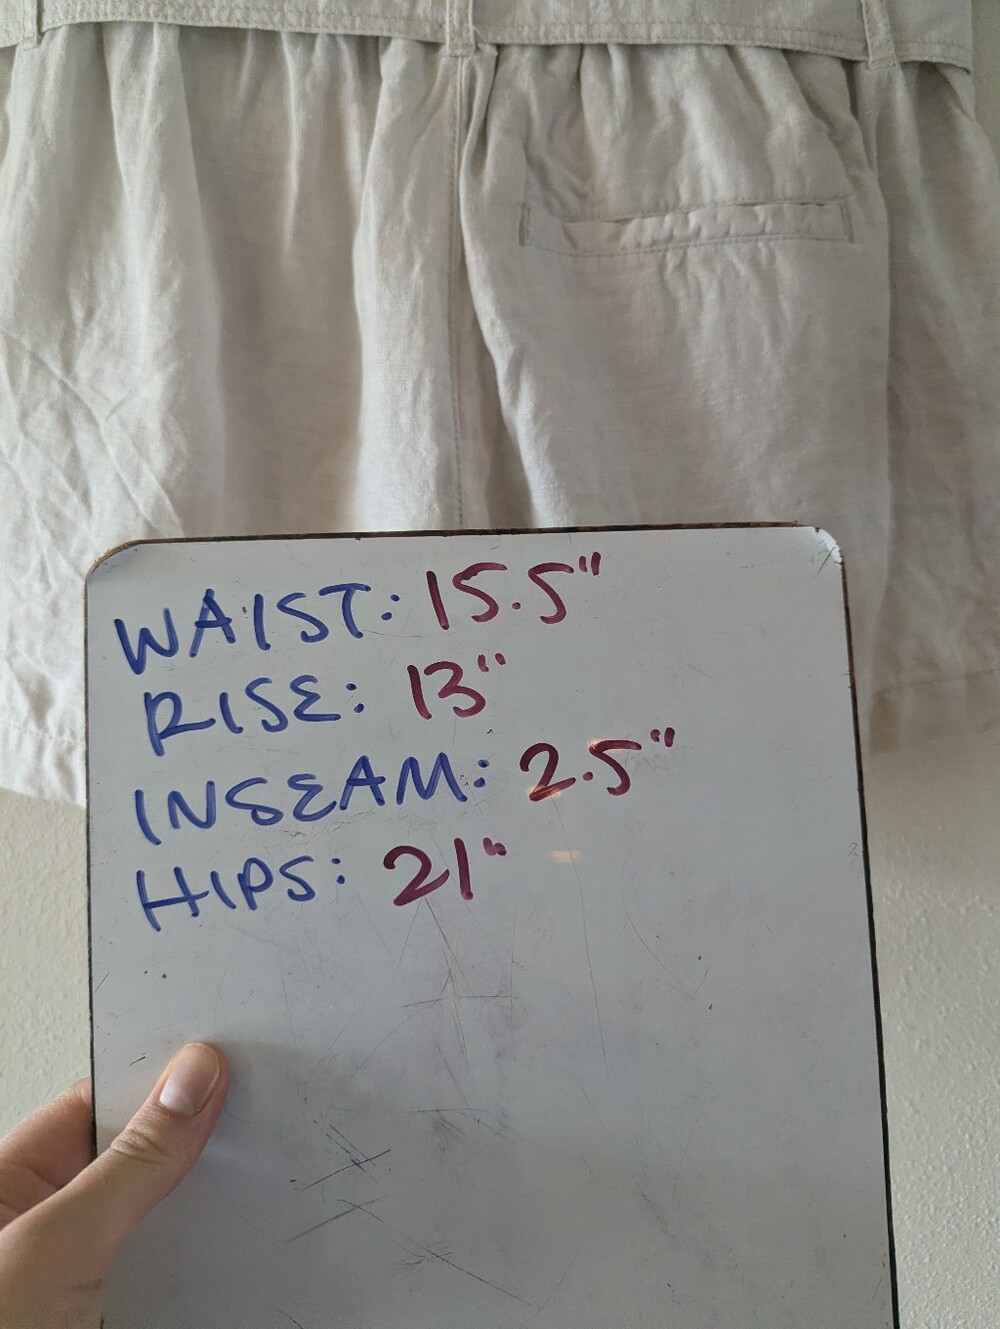 WAIST: 15.5"
RISE: 13"
INSEAM: 2.5"
HIPS: 21"